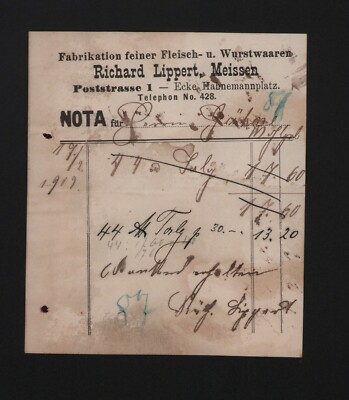 Fabrikation feiner Fleisch- u. Wurstwaaren
Richard Lippert, Meissen
Poststrasse 1 — Ecke Hahnemannplatz.
Telephon No. 428.
NOTA für
44 Talg 17 60
1912
17 60
44 Talg p 30.– 13.20
dankend erhalten
Rich. Lippert.